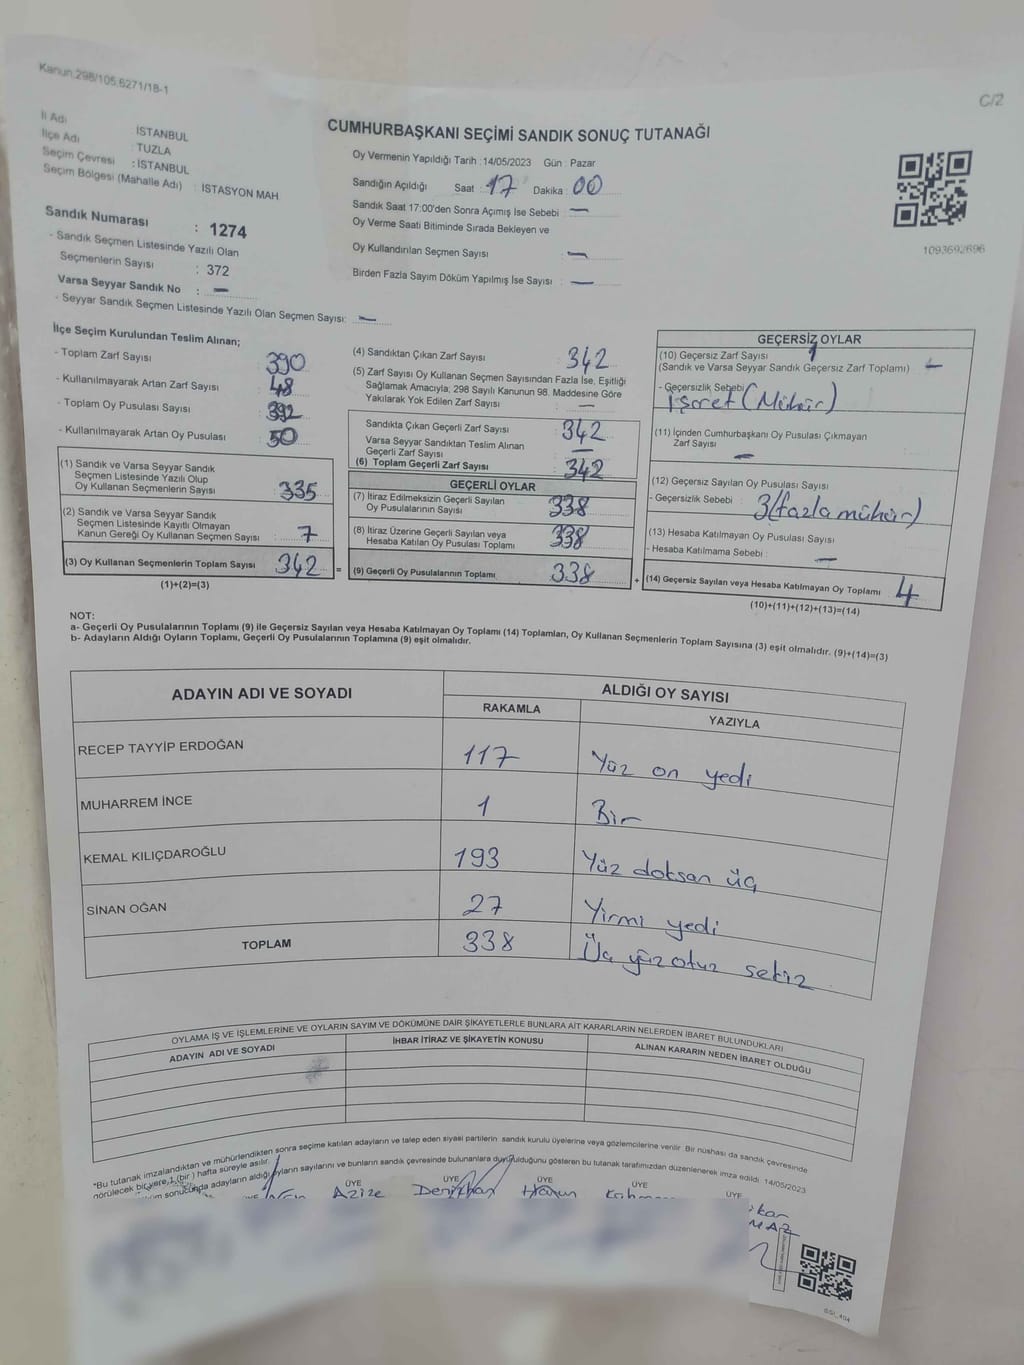 Kanun.298/105.6271/18-1
C/2
İl Adı : İSTANBUL
İlçe Adı : TUZLA
Seçim Çevresi : İSTANBUL
Seçim Bölgesi (Mahalle Adı) : İSTASYON MAH.
Sandık Numarası : 1274
- Sandık Seçmen Listesinde Yazılı Olan
Seçmenlerin Sayısı : 372
Varsa Seyyar Sandık No : —
- Seyyar Sandık Seçmen Listesinde Yazılı Olan Seçmen Sayısı: —
CUMHURBAŞKANI SEÇİMİ SANDIK SONUÇ TUTANAĞI
Oy Vermenin Yapıldığı Tarih : 14/05/2023 Gün : Pazar
Sandığın Açıldığı Saat : 17 Dakika : 00
Sandık Saat 17:00'den Sonra Açımış İse Sebebi : —
Oy Verme Saati Bitiminde Sırada Bekleyen ve
Oy Kullandırılan Seçmen Sayısı : —
Birden Fazla Sayım Döküm Yapılmış İse Sayısı : —
1093692696
İlçe Seçim Kurulundan Teslim Alınan;
- Toplam Zarf Sayısı : 390
- Kullanılmayarak Artan Zarf Sayısı : 48
- Toplam Oy Pusulası Sayısı : 392
- Kullanılmayarak Artan Oy Pusulası : 50
(1) Sandık ve Varsa Seyyar Sandık
Seçmen Listesinde Yazılı Olup
Oy Kullanan Seçmenlerin Sayısı : 335
(2) Sandık ve Varsa Seyyar Sandık
Seçmen Listesinde Kayıtlı Olmayan
Kanun Gereği Oy Kullanan Seçmen Sayısı : 7
(3) Oy Kullanan Seçmenlerin Toplam Sayısı : 342
(1)+(2)=(3)
=
(4) Sandıktan Çıkan Zarf Sayısı : 342
(5) Zarf Sayısı Oy Kullanan Seçmen Sayısından Fazla İse, Eşitliği
Sağlamak Amacıyla, 298 Sayılı Kanunun 98. Maddesine Göre
Yakılarak Yok Edilen Zarf Sayısı : —
Sandıkta Çıkan Geçerli Zarf Sayısı : 342
Varsa Seyyar Sandıktan Teslim Alınan
Geçerli Zarf Sayısı : —
(6) Toplam Geçerli Zarf Sayısı : 342
GEÇERLİ OYLAR
(7) İtiraz Edilmeksizin Geçerli Sayılan
Oy Pusulalarının Sayısı : 338
(8) İtiraz Üzerine Geçerli Sayılan veya
Hesaba Katılan Oy Pusulası Toplamı : 338
(9) Geçerli Oy Pusulalarının Toplamı : 338
+
GEÇERSİZ OYLAR
(10) Geçersiz Zarf Sayısı 1
(Sandık ve Varsa Seyyar Sandık Geçersiz Zarf Toplamı) : —
- Geçersizlik Sebebi
işaret (Mühür)
(11) İçinden Cumhurbaşkanı Oy Pusulası Çıkmayan
Zarf Sayısı : —
(12) Geçersiz Sayılan Oy Pusulası Sayısı
- Geçersizlik Sebebi : 3 (fazla mühür)
(13) Hesaba Katılmayan Oy Pusulası Sayısı
- Hesaba Katılmama Sebebi : —
(14) Geçersiz Sayılan veya Hesaba Katılmayan Oy Toplamı 4
(10)+(11)+(12)+(13)=(14)
NOT:
a- Geçerli Oy Pusulalarının Toplamı (9) ile Geçersiz Sayılan veya Hesaba Katılmayan Oy Toplamı (14) Toplamları, Oy Kullanan Seçmenlerin Toplam Sayısına (3) eşit olmalıdır. (9)+(14)=(3)
b- Adayların Aldığı Oyların Toplamı, Geçerli Oy Pusulalarının Toplamına (9) eşit olmalıdır.
ADAYIN ADI VE SOYADI ALDIĞI OY SAYISI
RAKAMLA YAZIYLA
RECEP TAYYİP ERDOĞAN 117 Yüz on yedi
MUHARREM İNCE 1 Bir
KEMAL KILIÇDAROĞLU 193 Yüz doksan üç
SİNAN OĞAN 27 Yirmi yedi
TOPLAM 338 Üç yüz otuz sekiz
OYLAMA İŞ VE İŞLEMLERİNE VE OYLARIN SAYIM VE DÖKÜMÜNE DAİR ŞİKAYETLERLE BUNLARA AİT KARARLARIN NELERDEN İBARET BULUNDUKLARI
ADAYIN ADI VE SOYADI İHBAR İTİRAZ VE ŞİKAYETİN KONUSU ALINAN KARARIN NEDEN İBARET OLDUĞU
*Bu tutanak imzalandıktan ve mühürlendikten sonra seçime katılan adayların ve talep eden siyasi partilerin sandık kurulu üyelerine veya gözlemcilerine verilir. Bir nüshası da sandık çevresinde
görülecek bir yere 1 (bir) hafta süreyle asılır.
sonucunda adayların aldığı oyların sayılarını ve bunların sandık çevresinde bulunanlara duyurulduğunu gösteren bu tutanak tarafımızdan düzenlenerek imza edildi. 14/05/2023
ÜYE ÜYE ÜYE ÜYE ÜYE
Azize Denizhan Harun
SSİ_404